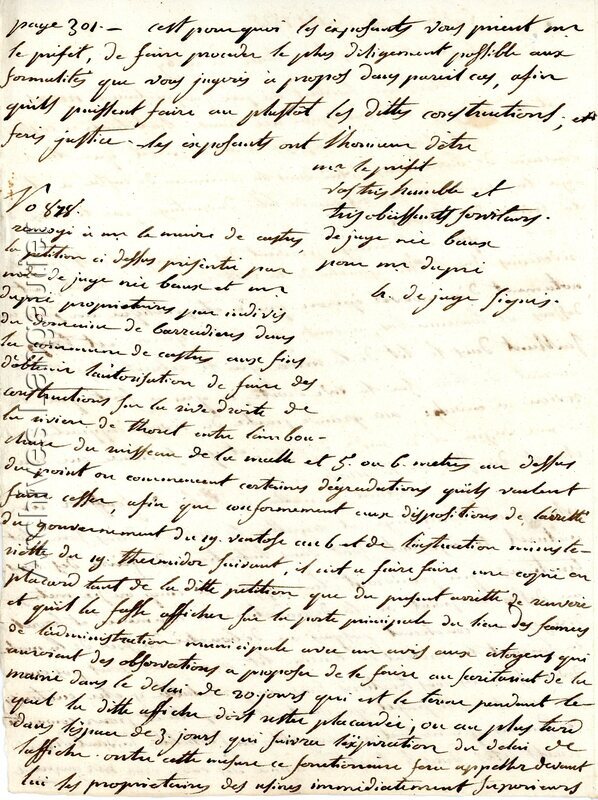 page 301. — c'est pourquoi les exposants vous prient mr
le préfet, de faire proceder le plus diligement possible aux
formalités que vous jugerés a propos dans pareil cas, afin
quils puissent faire au plustôt les dittes constructions, et
ferés justice. les exposants ont l'honneur d'être
mr le préfet
vos tres humble et
tres obeissants serviteurs.
de juge née baux
pour mr dupré
h. de juge signés.
No 878.
renvoyé à mr le maire de castres,
la petition ci dessus présentée par
mde de juge née baux et mr
dupré propriétaires par indivis
du domaine de barradieres dans
la commune de castres aux fins
d'obtenir l'autorisation de faire des
constructions sur la rive droite de
la riviere de thoret entre l'embou-
chure du ruisseau de la mulle et 5. ou 6. metres au dessus
du point ou commencent certaines dégradations quils veulent
faire cesser, afin que conformement aux dispositions de l'arretté
du gouvernement du 19. ventose an 6 et de l'instruction ministe-
rielle du 19. thermidor suivant, il ait a faire faire une copie en
placard tant de la ditte petition que du present arretté de renvoi
et qu'il la fasse afficher sur la porte principale du lieu des séances
de l'administration municipale avec un avis aux citoyens qui
auroient des observations a proposer de le faire au secretariat de la
mairie dans le delai de 20 jours qui est le terme pendant le-
quel la ditte affiche doit rester placardée, ou au plus tard
dans l'espace de 3. jours qui suivra l'expiration du delai de
l'affiche. outre cette mesure ce fonctionaire fera appeller devant
lui les proprietaires des usines immédiatement superieurs
Archives Tarn